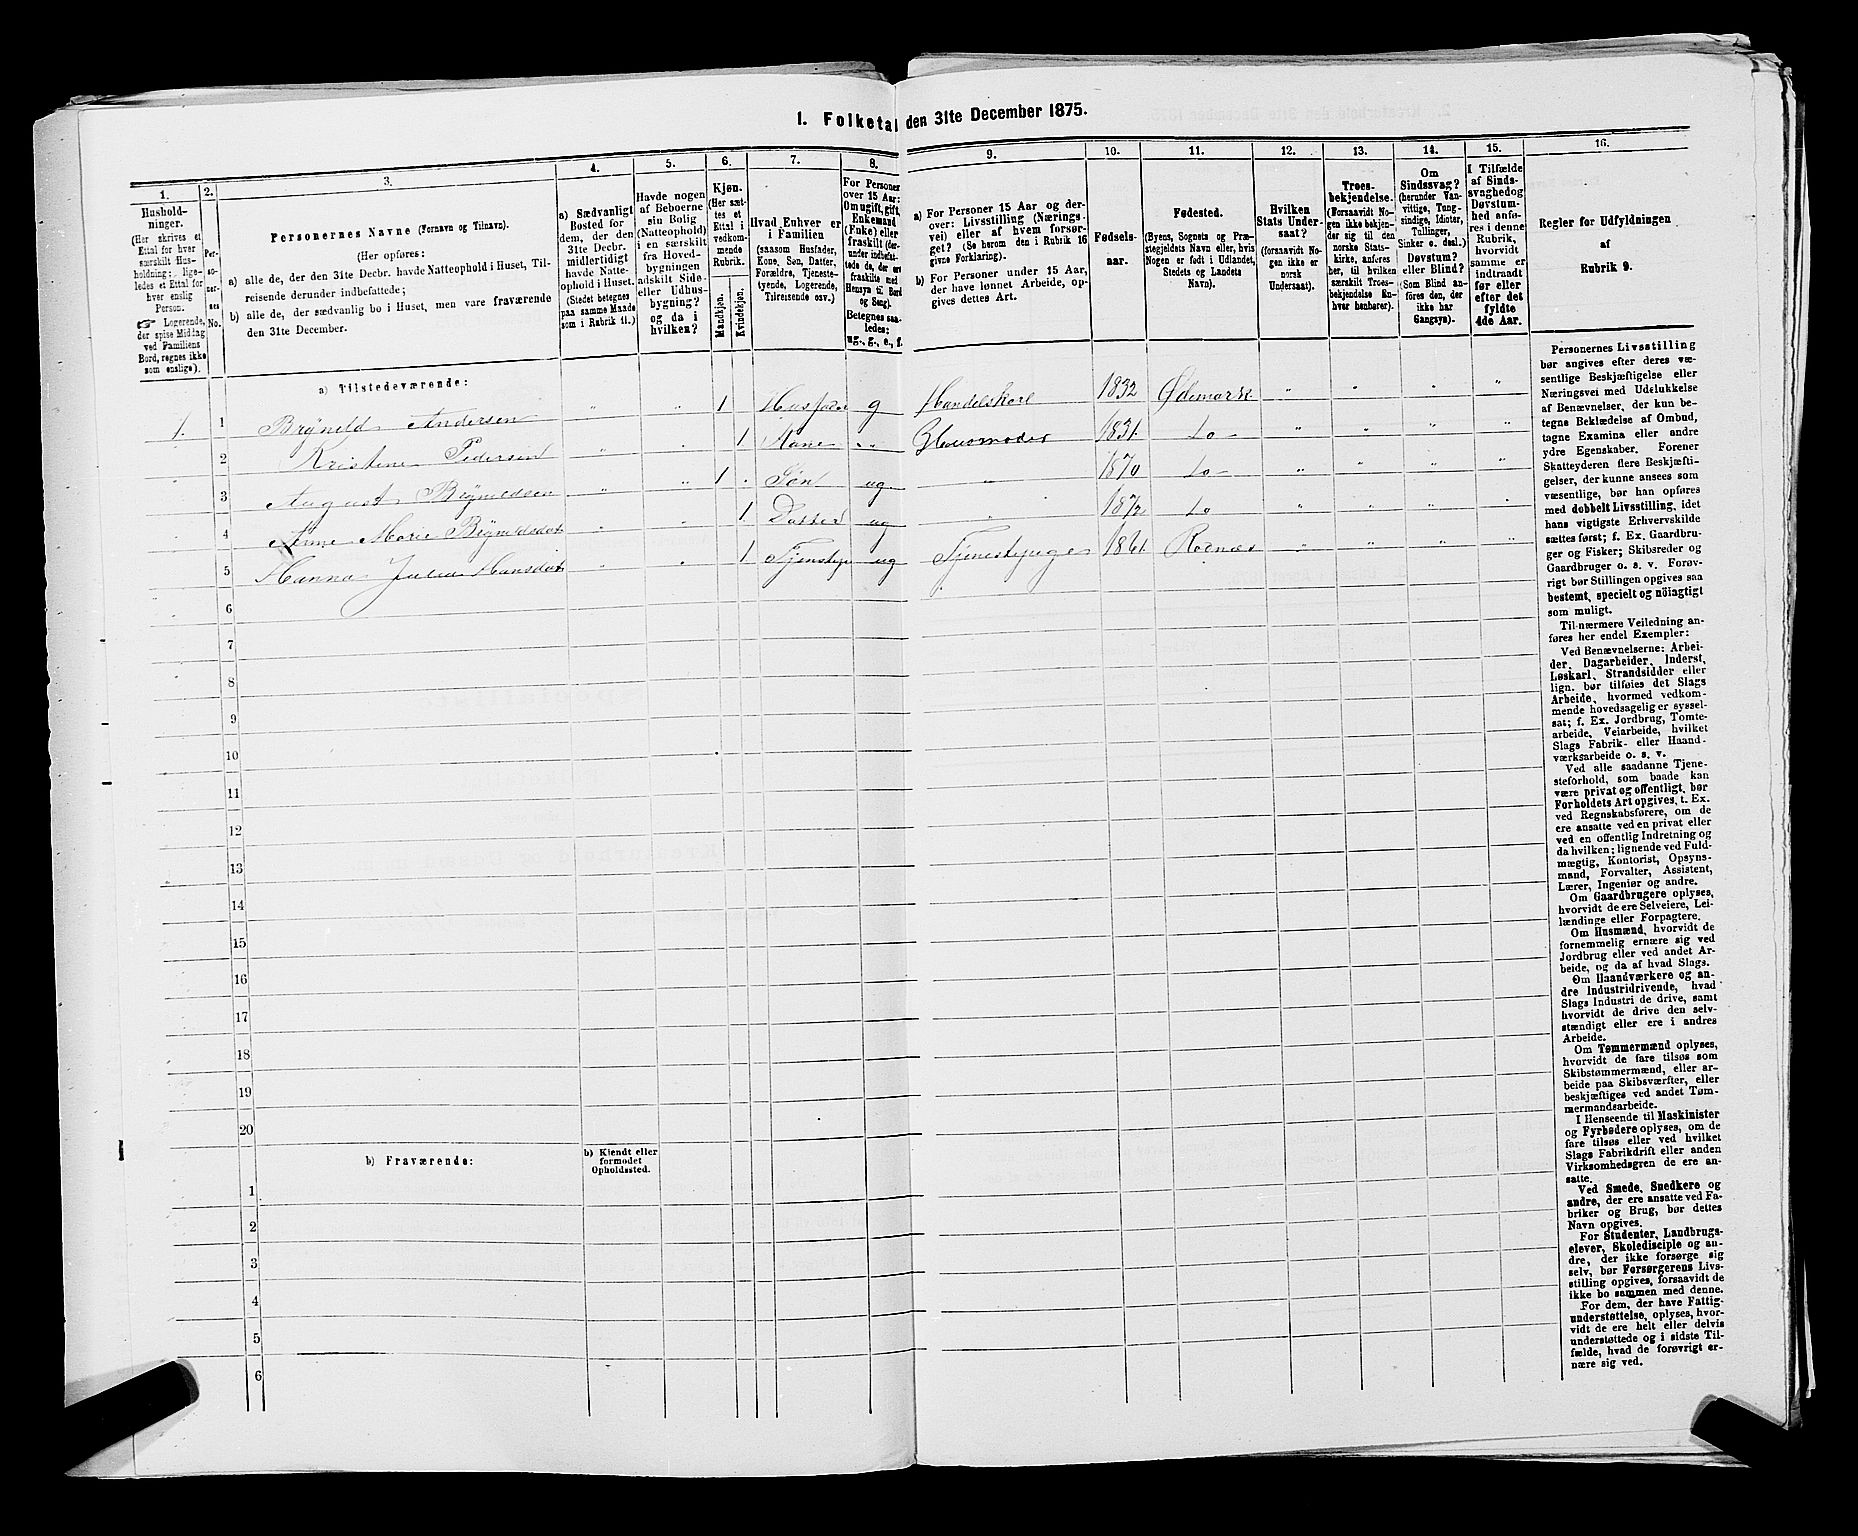 1. Folketal den 31te December 1875.
1.
2.
3.
4.
5.
6.
7.
8.
9.
10.
11.
12.
13.
14.
15.
16.
Hushold-
ninger.
(Her skrives et
Ettal for hver
særskilt Hus-
holdning; lige-
ledes et Ettal for
hver enslig
Person.
☞ Logerende,
der spise Middag
ved Familiens
Bord, regnes ikke
som enslige).
Per-
so-
ner-
nes
No.
Personernes Navne (Fornavn og Tilnavn).
(Her opføres:
a) alle de, der den 31te Decbr. havde Natteophold i Huset, Til-
reisende derunder indbefattede;
b) alle de, der sædvanlig bo i Huset, men vare fraværende
den 31te December.
a) Sædvanligt
Bosted for
dem, der den
31te Decbr.
midlertidigt
havde Natte-
ophold i Huset.
(Stedet betegnes
paa samme Maade
som i Rubrik 11.)
Havde nogen
af Beboerne
sin Bolig
(Natteophold)
i en særskilt
fra Hoved-
bygningen
adskilt Side-
eller Udhus-
bygning?
og da i
hvilken?
Kjøn.
(Her sæt-
tes et
Ettal i
vedkom-
mende
Rubrik.
Mandkjøn.
Kvindekjøn.
Hvad Enhver er
i Familien
(saasom Husfader,
Kone, Søn, Datter,
Forældre, Tjeneste-
tyende, Logerende,
Tilreisende osv.)
For Personer
over 15 Aar:
Om ugift, gift,
Enkemand
(Enke) eller
fraskilt (der-
under indbefat-
tede de, der ere
fraskilte med
Hensyn til Bord
og Seng).
Betegnes saa-
ledes:
ug., g., e., f.
a) For Personer 15 Aar og der-
over: Livsstilling (Nærings-
vei) eller af hvem forsør-
get? (Se herom den i Rubrik 16
givne Forklaring).
b) For Personer under 15 Aar,
der have lønnet Arbeide, op-
gives dettes Art.
Fødsels-
aar.
Fødested.
(Byens, Sognets og Præ-
stegjeldets Navn eller, hvis
Nogen er født i Udlandet,
Stedets og Landets
Navn).
Hvilken
Stats Under-
saat?
(forsaavidt No-
gen ikke er
norsk
Undersaat).
Troes-
bekjendelse.
(Forsaavidt No-
gen ikke bekjen-
der sig til den
norske Stats-
kirke, anføres
her, til hvilken
særskilt Troes-
bekjendelse En-
hver henhører).
Om
Sindssvag?
(herunder Van-
vittige, Tung-
sindige, Idioter,
Tullinger,
Sinker o. desl.)
Døvstum?
eller Blind?
(Som Blind an-
føres den, der
ikke har
Gangsyn).
I Tilfælde
af Sinds-
svaghed og
Døvstum-
hed anfø-
res i denne
Rubrik,
hvorvidt
samme er
indtraadt
før eller
efter det
fyldte
4de Aar.
Regler for Udfyldningen
af
Rubrik 9.
a) Tilstedeværende:
1. 1 Brynild Andersen " " 1 Husfader g Handelskarl 1832 Ødemark " " " "
2 Kristine Pedersen " 1 Kone " " Huusmoder 1831 do " " " "
3 August Brynildsen " " 1 Søn ug " 1870 do " " " "
4 Anne Marie Brynildsdat " " 1 Datter ug " 1872 do " " "
5 Hanna Julie Hansdat " " 1 Tjenstep ug Tjenestepige 1861 Rornæs " " " "
6
7
8
9
10
11
12
13
14
15
16
17
18
19
20
b) Fraværende:
b) Kjendt eller
formodet
Opholdssted.
1
2
3
4
5
6
Personernes Livsstilling
bør angives efter deres væ-
sentlige Beskjæftigelse eller
Næringsvei med Udelukkelse
af Benævnelser, der kun be-
tegne Beklædelse af Ombud,
tagne Examina eller andre
ydre Egenskaber. Forener
Skatteyderen flere Beskjæfti-
gelser, der kunne ansees som
væsentlige, bør han opføres
med dobbelt Livsstilling, idet
hans vigtigste Erhvervskilde
sættes først; f. Ex. Gaardbru-
ger og Fisker; Skibsreder og
Gaardbruger o. s. v. Forøv-
rigt bør Stillingen opgives saa
bestemt, specielt og nöiagtigt
som muligt.
Til nærmere Veiledning an-
føres her endel Exempler:
Ved Benævnelserne: Arbei-
der, Dagarbeider, Inderst,
Løskarl, Strandsidder eller
lign. bør tilføies det Slags
Arbeide, hvormed vedkom-
mende hovedsagelig er syssel-
sat; f. Ex. Jordbrug, Tomte-
arbeide, Veiarbeide, hvilket
Slags Fabrik- eller Haand-
værksarbeide o. s. v.
Ved alle saadanne Tjene-
steforhold, som baade kan
være privat og offentligt, bør
Forholdets Art opgives, t. Ex.
ved Regnskabsførere, om de
ere ansatte ved en privat eller
ved en offentlig Indretning og
da hvilken; lignende ved Fuld-
mægtig, Kontorist, Opsyns-
mand, Forvalter, Assistent,
Lærer, Ingeniør og andre.
Om Gaardbrugere oplyses,
hvorvidt de ere Selveiere, Lei-
lændinge eller Forpagtere.
Om Husmænd, hvorvidt de
fornemmelig ernære sig ved
Jordbrug eller ved andet Ar-
beide, og da af hvad Slags.
Om Haandværkere og an-
dre Industridrivende, hvad
Slags Industri de drive, samt
hvorvidt de drive den selv-
stændigt eller ere i andres
Arbeide.
Om Tømmermænd oplyses,
hvorvidt de fare tilsøs som
Skibstømmermænd, eller ar-
beide paa Skibsværfter, eller
beskjæftiges ved andet Tøm-
mermandsarbeide.
I Henseende til Maskinister
og Fyrbødere oplyses, om de
fare tilsøs eller ved hvilket
Slags Fabrikdrift eller anden
Virksomhedsgren de ere an-
satte.
Ved Smede, Snedkere og
andre, der ere ansatte ved Fa-
briker og Brug, bør dettes
Navn opgives.
For Studenter, Landbrugs-
elever, Skoledisciple og an-
dre, der ikke forsørge sig
selv, bør Forsørgerens Livs-
stilling opgives, forsaavidt de
ikke bo sammen med denne.
For dem, der have Fattig-
understøttelse, oplyses, hvor-
vidt de ere helt eller delvis
understøttede og i sidste Til-
fælde, hvad de forøvrigt er-
nære sig ved.